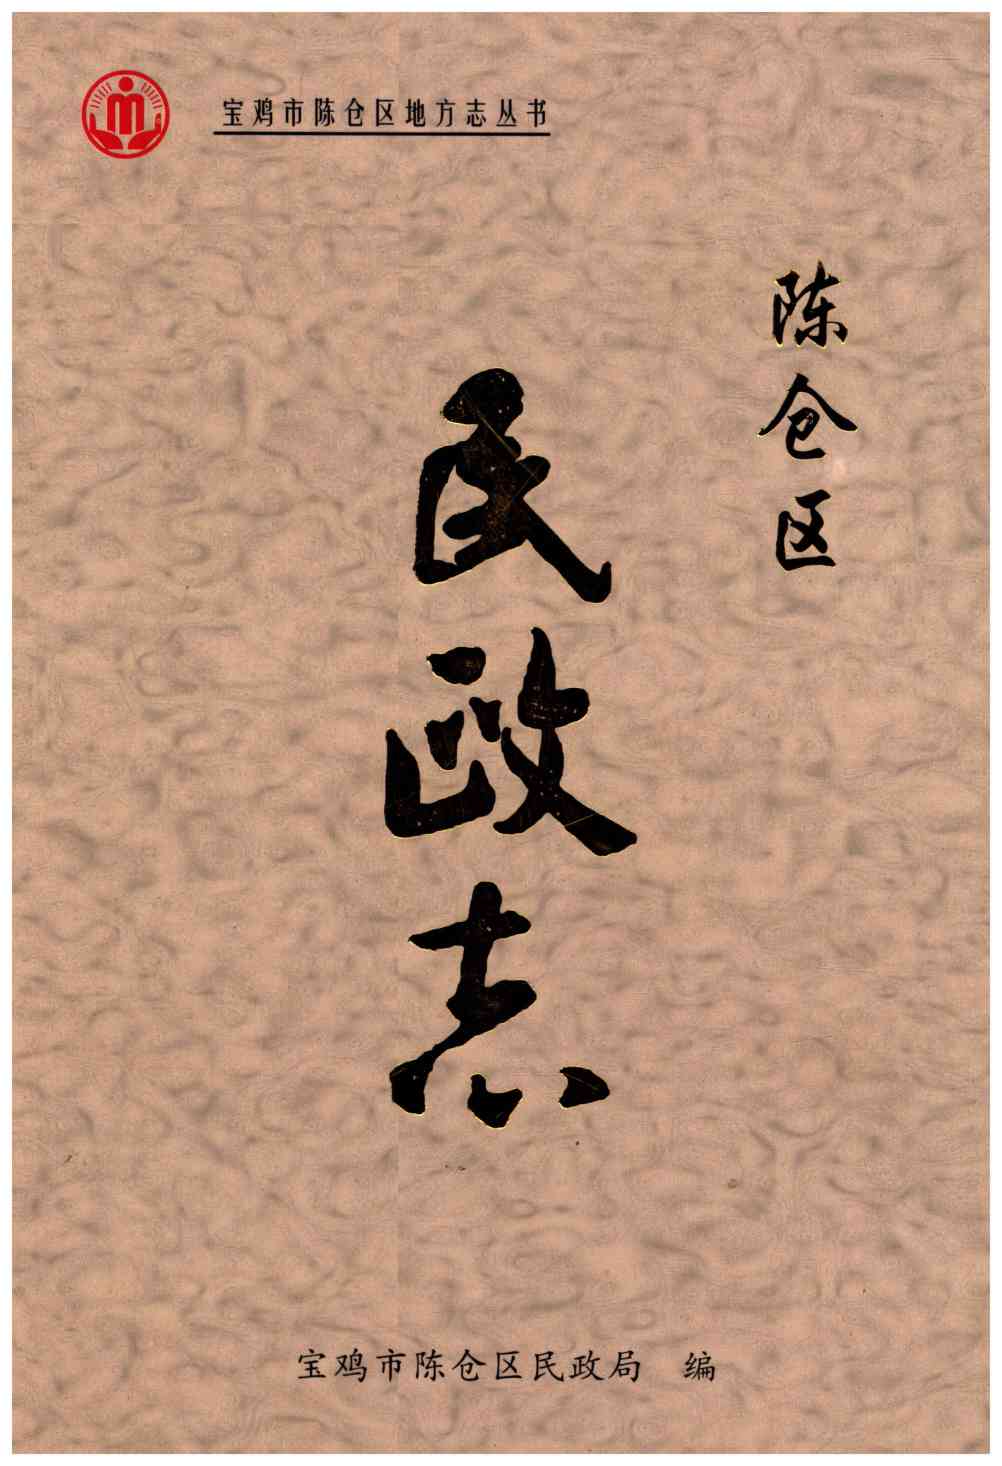 宝鸡市陈仓区地方志丛书
陈仓区
民政志
宝鸡市陈仓区民政局 编